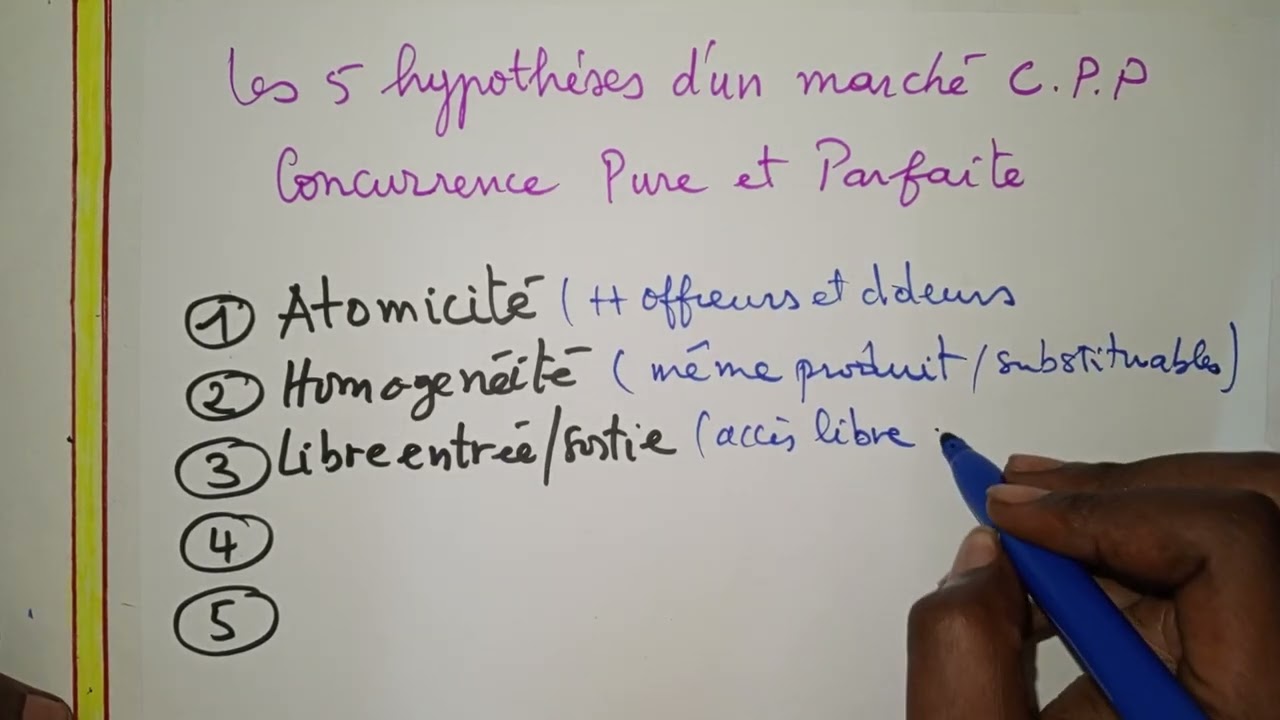 Les 5 hypothéses d'un marché C.P.P
Concurrence Pure et Parfaite
1 Atomicité (++ offreurs et ddeurs
2 Homogenéité (même produit/substituables)
3 Libre entrée/sortie (accès libre
4
5